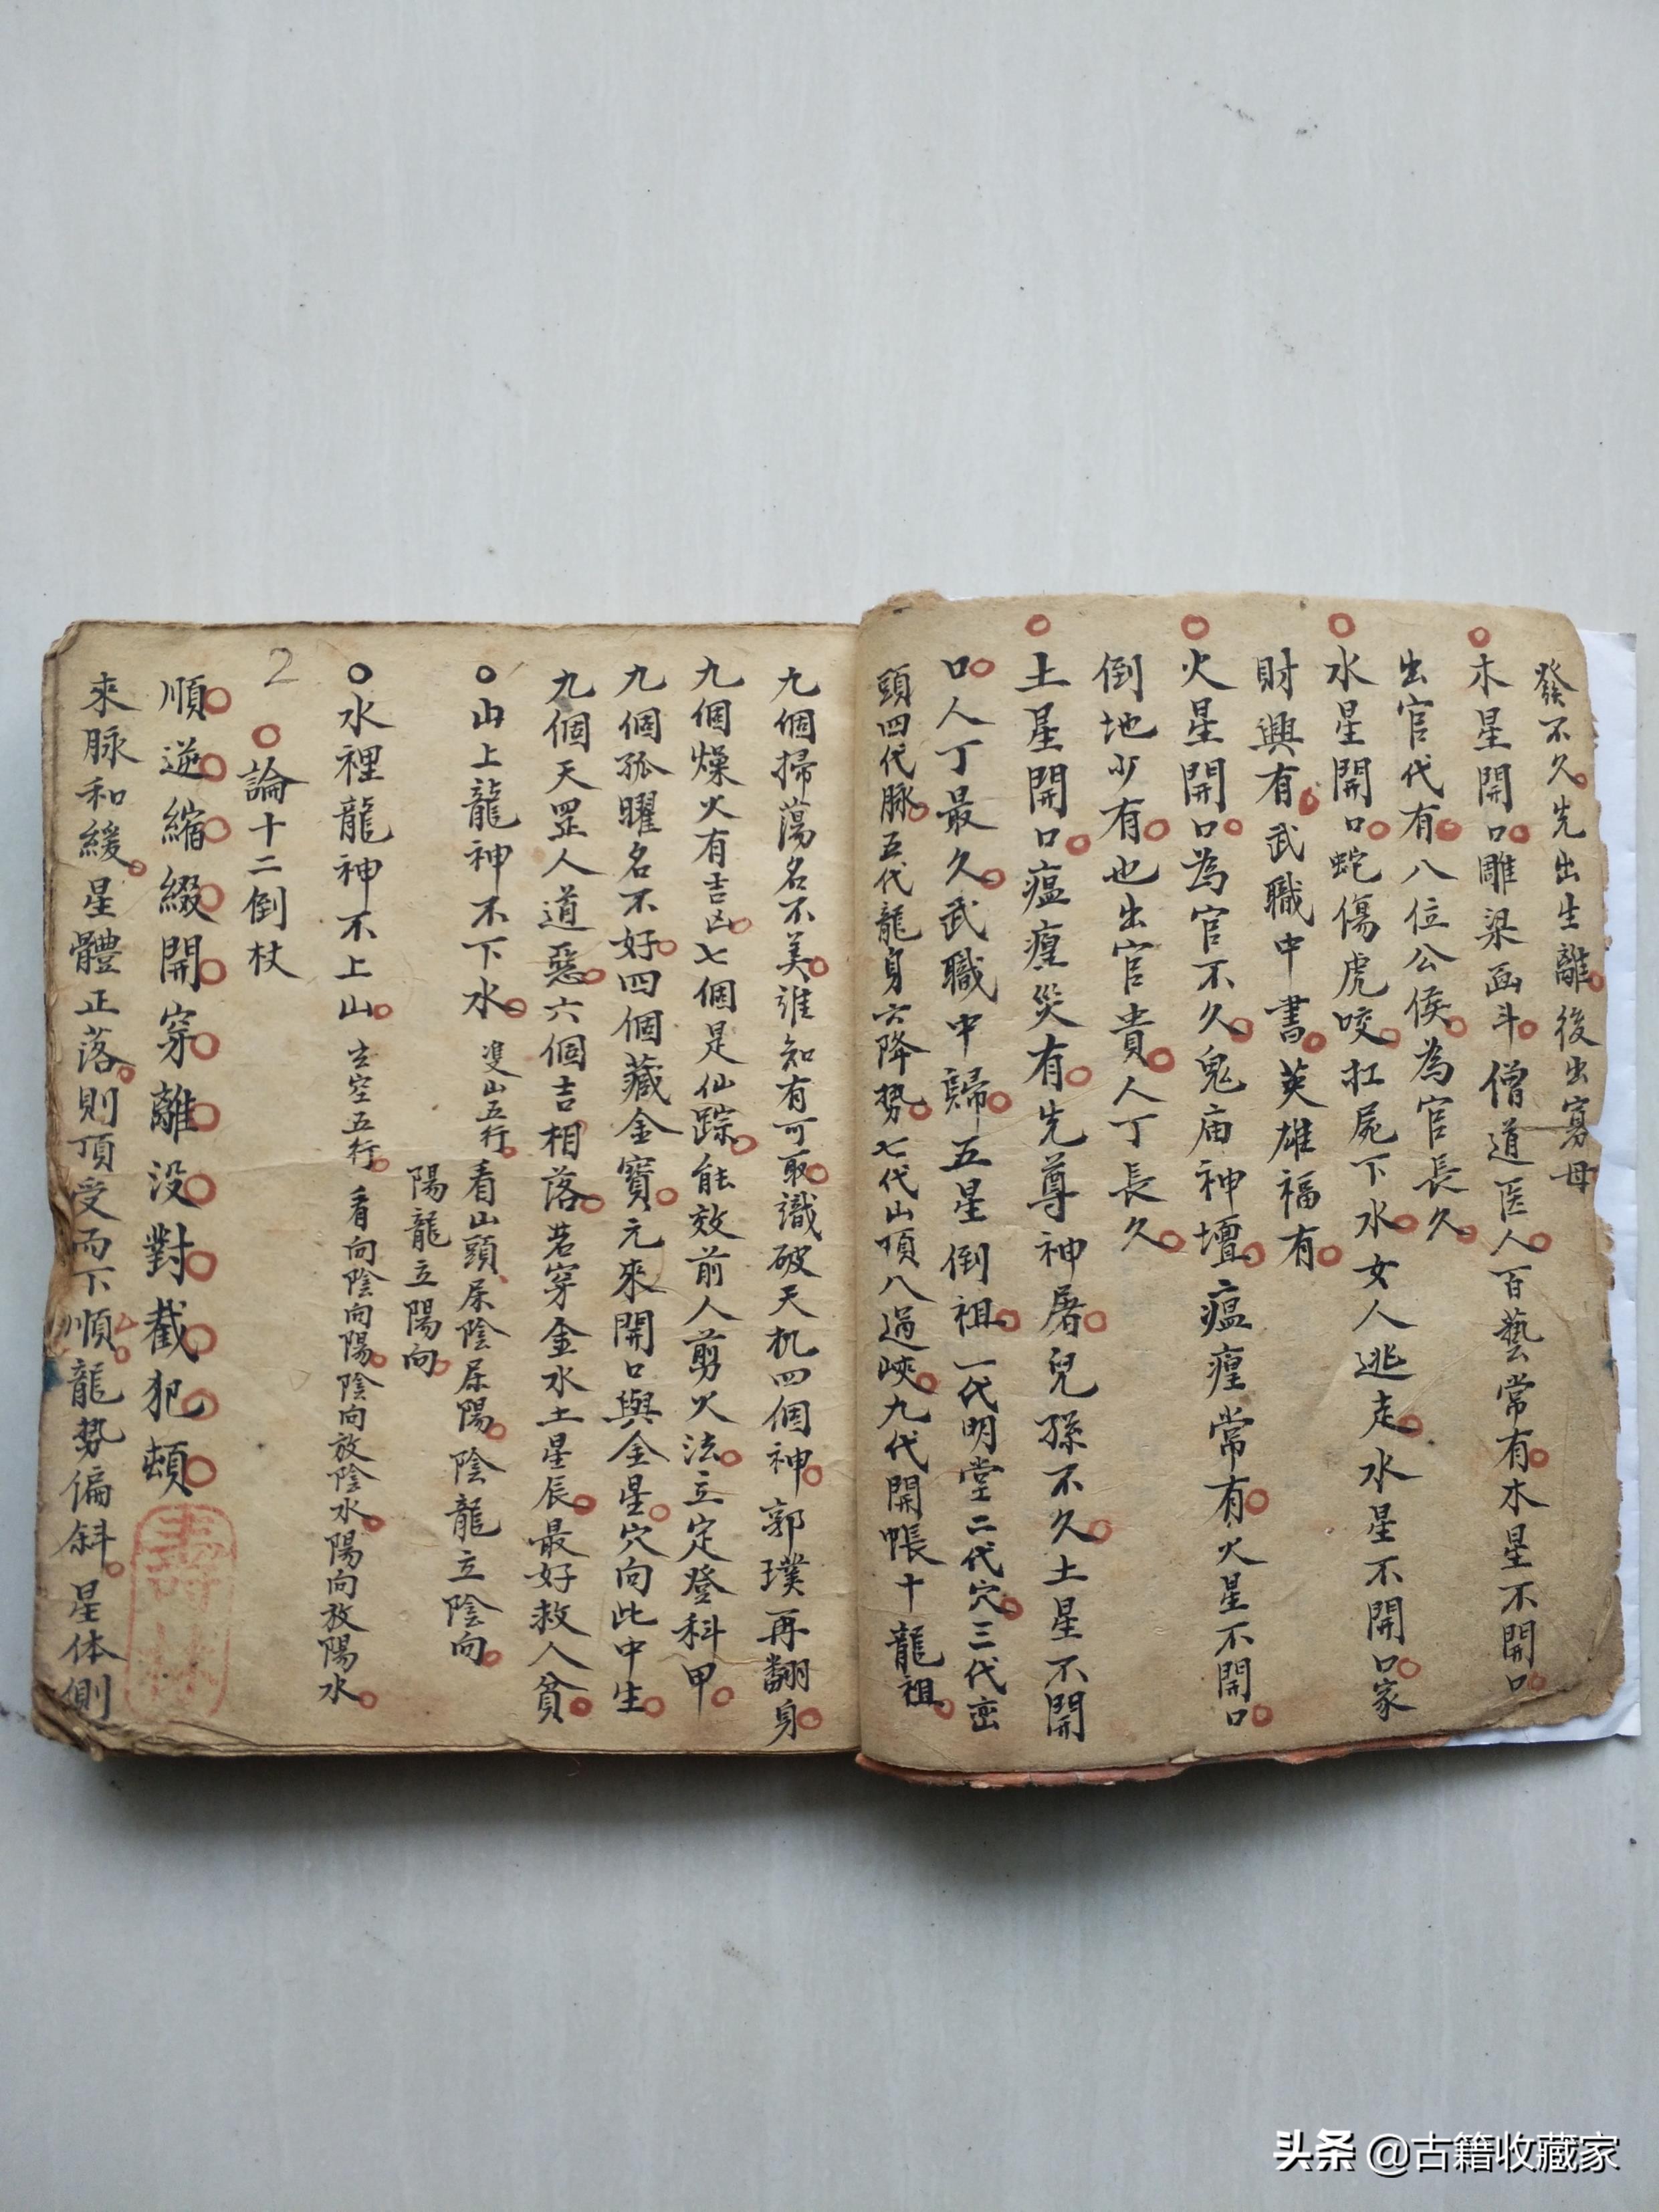 發不久先出生離後出寡母
木星開口雕梁画斗僧道医人百藝常有木星不開口
出官代有八位公侯為官長久
水星開口蛇傷虎咬扛屍下水女人逃走水星不開口家
財興有武職中書英雄福有
火星開口為官不久鬼庙神壇瘟瘟常有火星不開口
倒地少有也出官貴人丁長久
土星開口瘟瘟災有先尊神屠兒孫不久土星不開
口人丁最久武職中歸五星倒祖一代明堂二代穴三代巒
頭四代脉五代龍身六降势七代山頂八過峽九代開帳十龍祖
九個掃蕩名不美誰知有可取識破天机四個神郭璞再翻身
九個燥火有吉凶七個是仙踪能效前人剪火法立定登科甲
九個孤曜名不好四個藏金寶元來開口與金星穴向此中生
九個天罡人道惡六個吉相落若穿金水土星辰最好救人貧
山上龍神不下水 雙山五行看山頭屎陰屎陽陰龍立陰向
陽龍立陽向
水裡龍神不上山 玄空五行看向陰向陽陰向放陰水陽向放陽水
2
論十二倒杖
順逆縮綴開穿離没對截犯頓
來脉和緩星體正落則頂受而下順龍势偏斜星体側
头条 @古籍收藏家